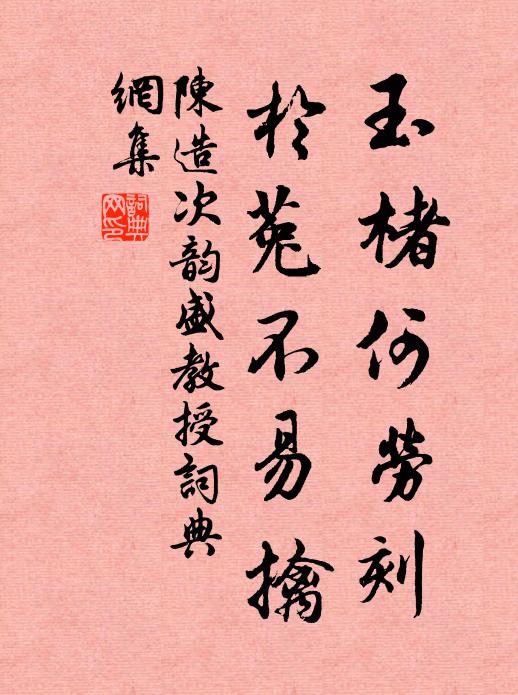 玉楮何勞刻
於菟不易擒
陳造次韵盛教授詞典
網集
詞典網印